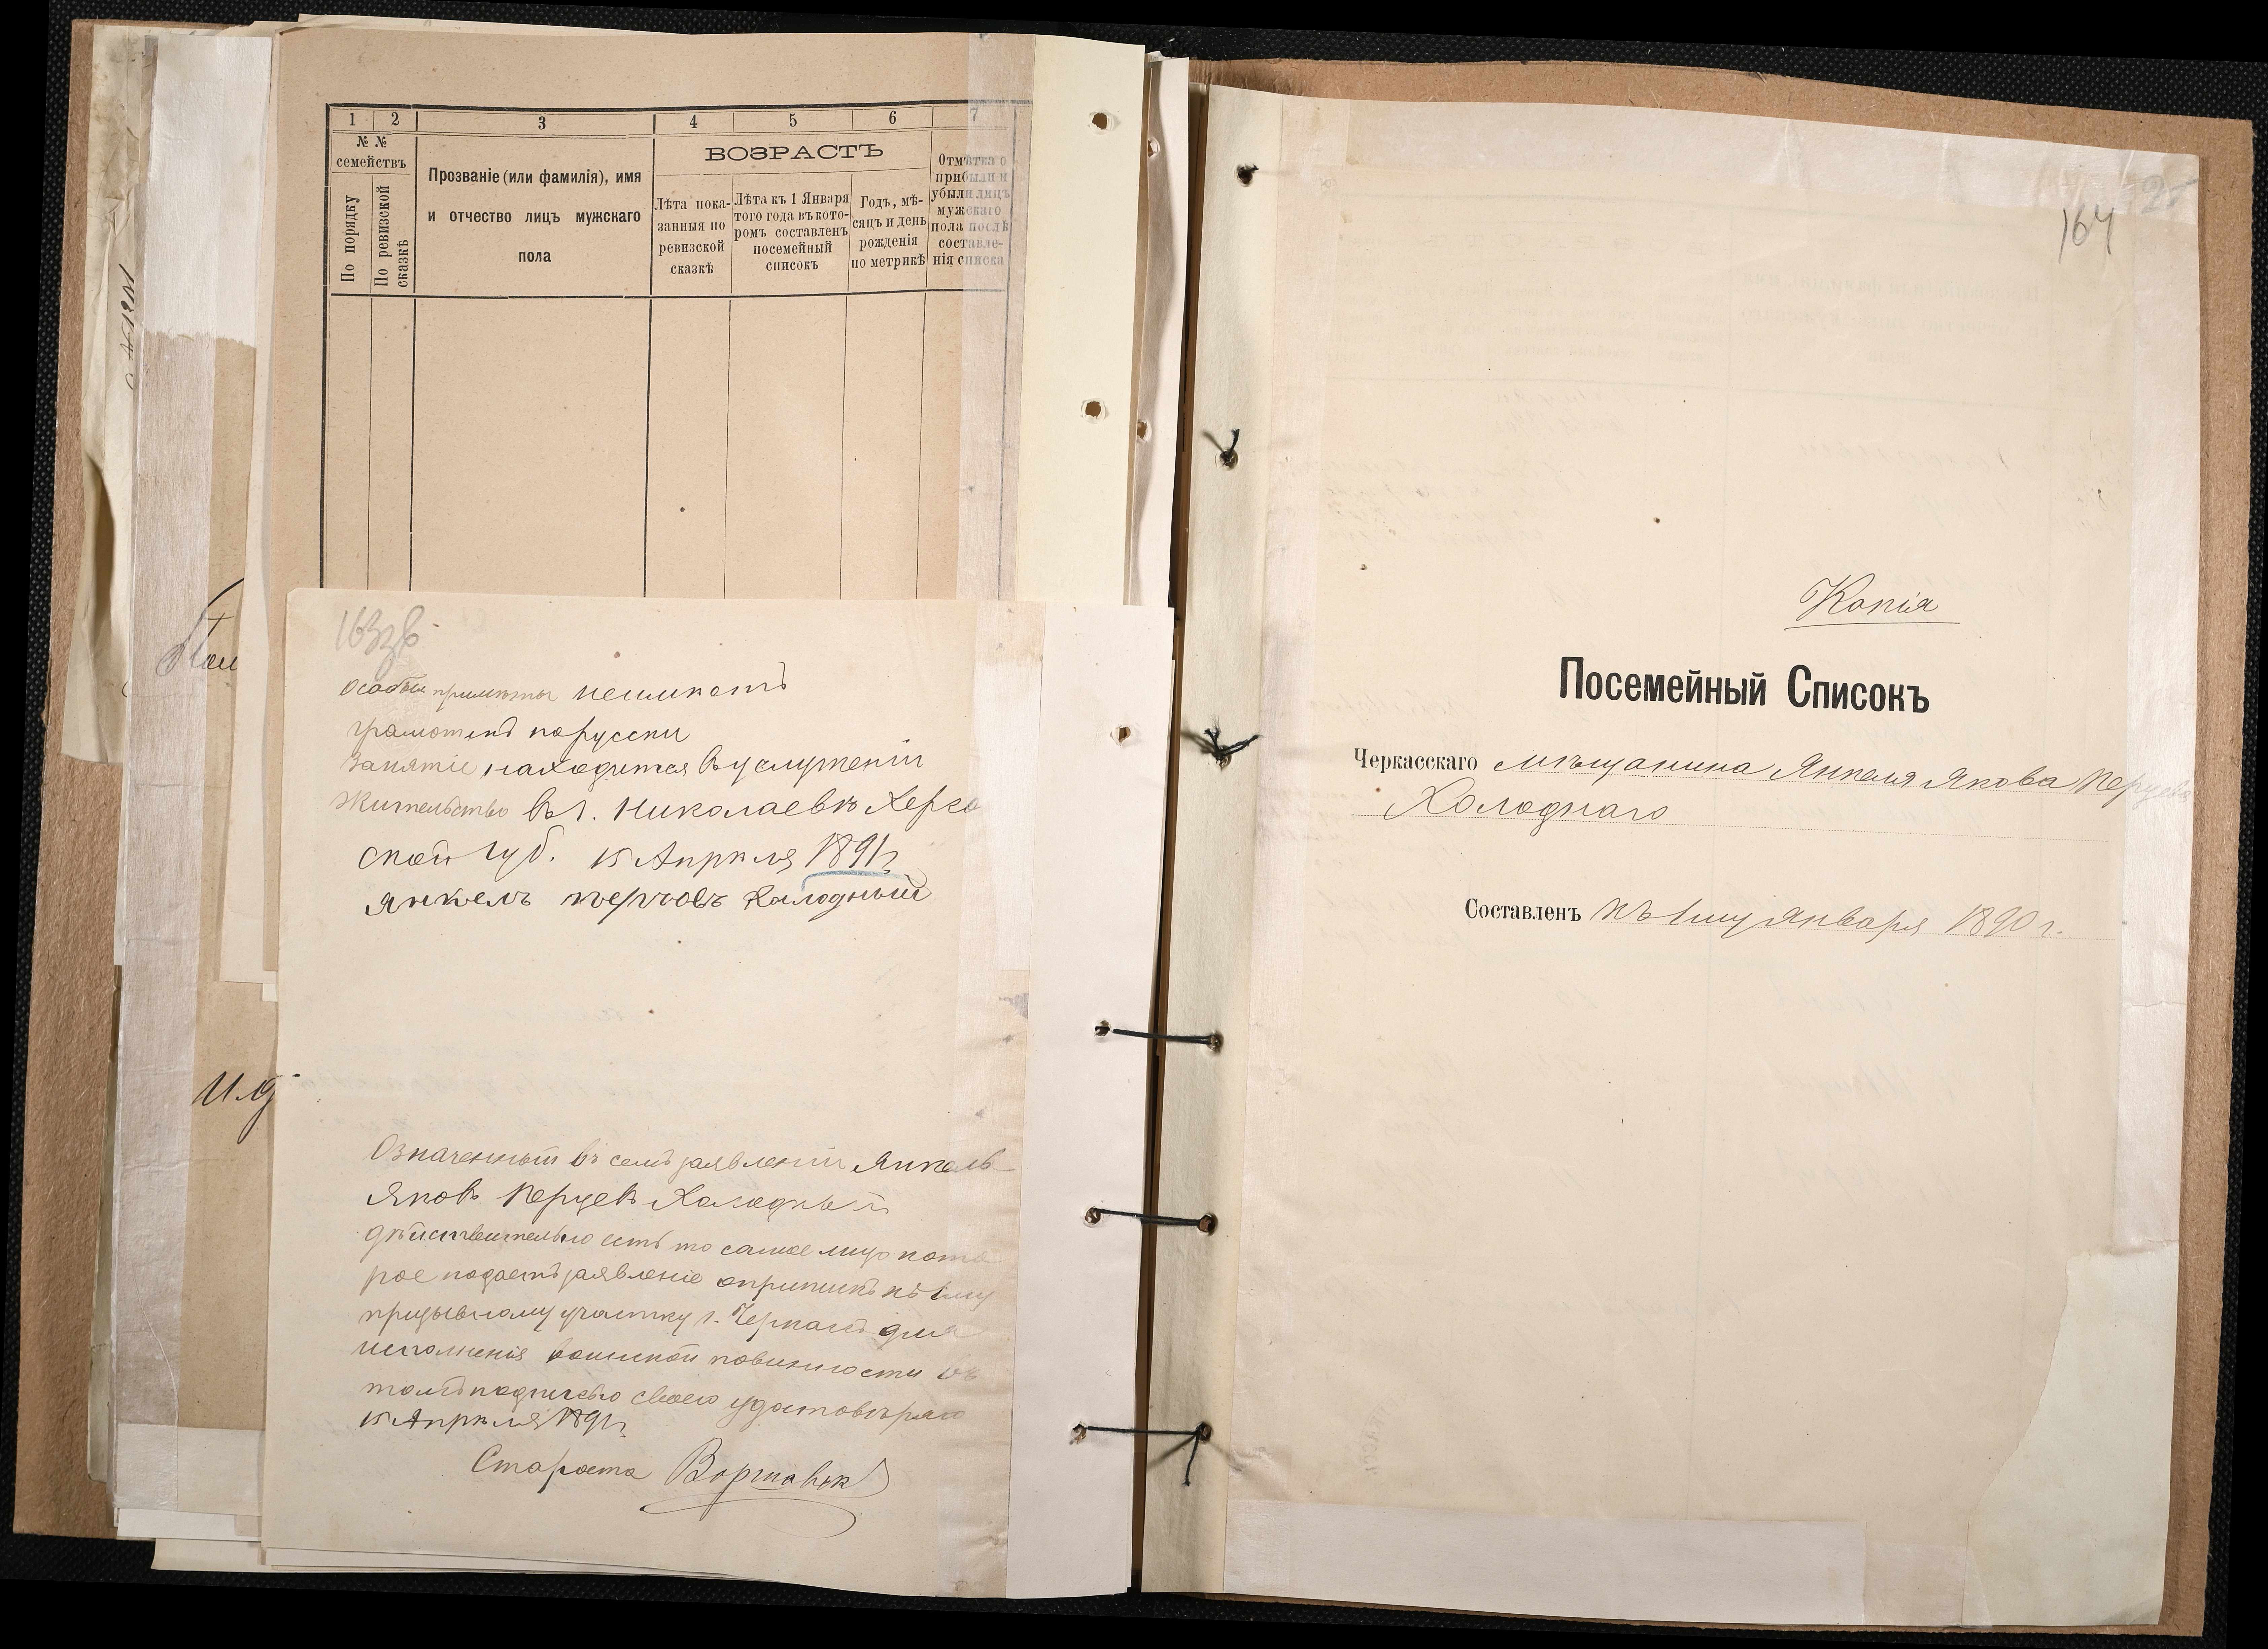 1 2 3 4 5 6 7
№ № семействъ
По порядку
По ревизской сказкѣ
Прозваніе (или фамилія), имя
и отчество лицъ мужскаго
пола
ВОЗРАСТЪ
Лѣта пока-
занныя по
ревизской
сказкѣ
Лѣта къ 1 Января
того года въ кото-
ромъ составленъ
посемейный
списокъ
Годъ, мѣ-
сяцъ и день
рожденія
по метрикѣ
Отмѣтка о
прибыли и
убыли лицъ
мужскаго
пола послѣ
составле-
нія списка
163зв
Особыя примѣты неимѣетъ
грамотенъ порусски
Занятіе находится въ услуженіи
Жительство въ г. Николаевѣ Херсо
ской губ. 15 Апрѣля 1891 г.
Янкель Холодный
Означенный въ семъ заявленіи Янкель
Яковъ Перцевъ Холодный
дѣйствительно есть то самое лицо кото
рое подаетъ заявленіе о припискѣ къ 1му
призывному участку г. Черкасъ для
исполненія воинской повинности въ
томъ подписью своею удостовѣряю
15 Апрѣля 1891 г.
Староста
Пол
И.д
164
Копія
Посемейный Списокъ
Черкасскаго мѣщанина Янкеля Якова Перцева
Холоднаго
Составленъ къ 1му января 1890 г.